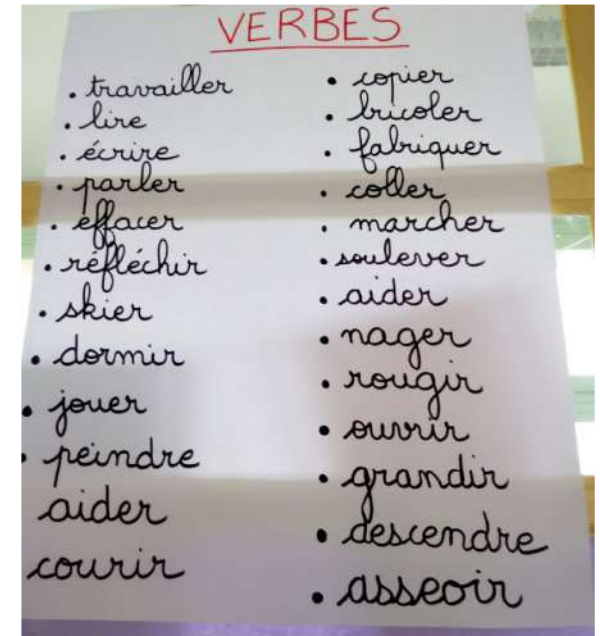 VERBES
• travailler
• lire
• écrire
• parler
• effacer
• réfléchir
• skier
• dormir
• jouer
• peindre
aider
courir
• copier
• bricoler
• fabriquer
• coller
• marcher
• soulever
• aider
• nager
• rougir
• ouvrir
• grandir
• descendre
• asseoir